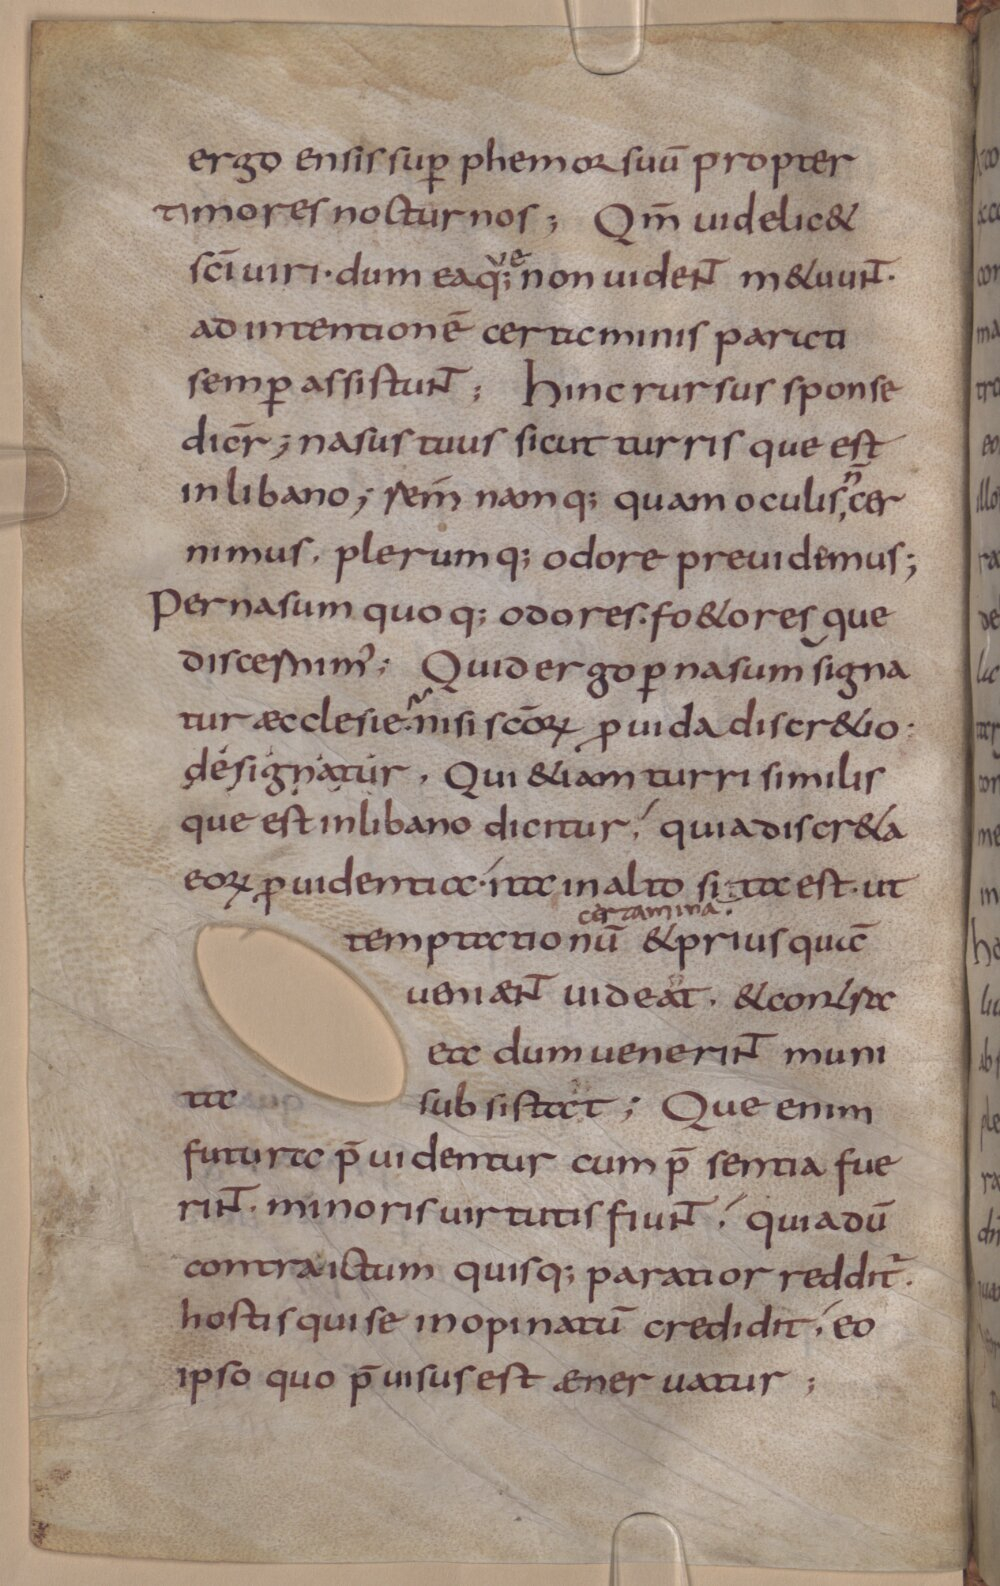 ergo ensis sup̄ phemor suū propter
timores nocturnos; Qm̄ uidelic&
sc̄i uiri· dum eaq; ue non uident m&uunt·
ad intentionē certaminis parati
semp̄ assistunt; hinc rursus sponse
dicr̄; nasus tuus sicut turris que est
in libano; rem̄ namq; quam oculis n̄ cer
nimus, plerumq; odore preuidemus;
Per nasum quoq; odores· fo&ores que
discernim᾽; Quid ergo p̄ nasum signa
tur æcclesie· nisi sc̄oꝝ ꝓuida discr&io·
designatur, Qui &iam turri similis
que est in libano dicitur; quia discr&a
eoꝝ ꝓuidentia· ita in alto sita est· ut
certamina·
temptationū & prius quā
ueniænt uideat, & contra
ea dum uenerint muni
ta subsistat; Que enim
futura p̄uidentur cum p̄sentia fue
rint· minoris uirtutis fiunt; quia dū
contra ictum quisq; paratior reddit᾽·
hostis qui se inopinatū credidit; eo
ipso quo p̄uisus est æneruatur;